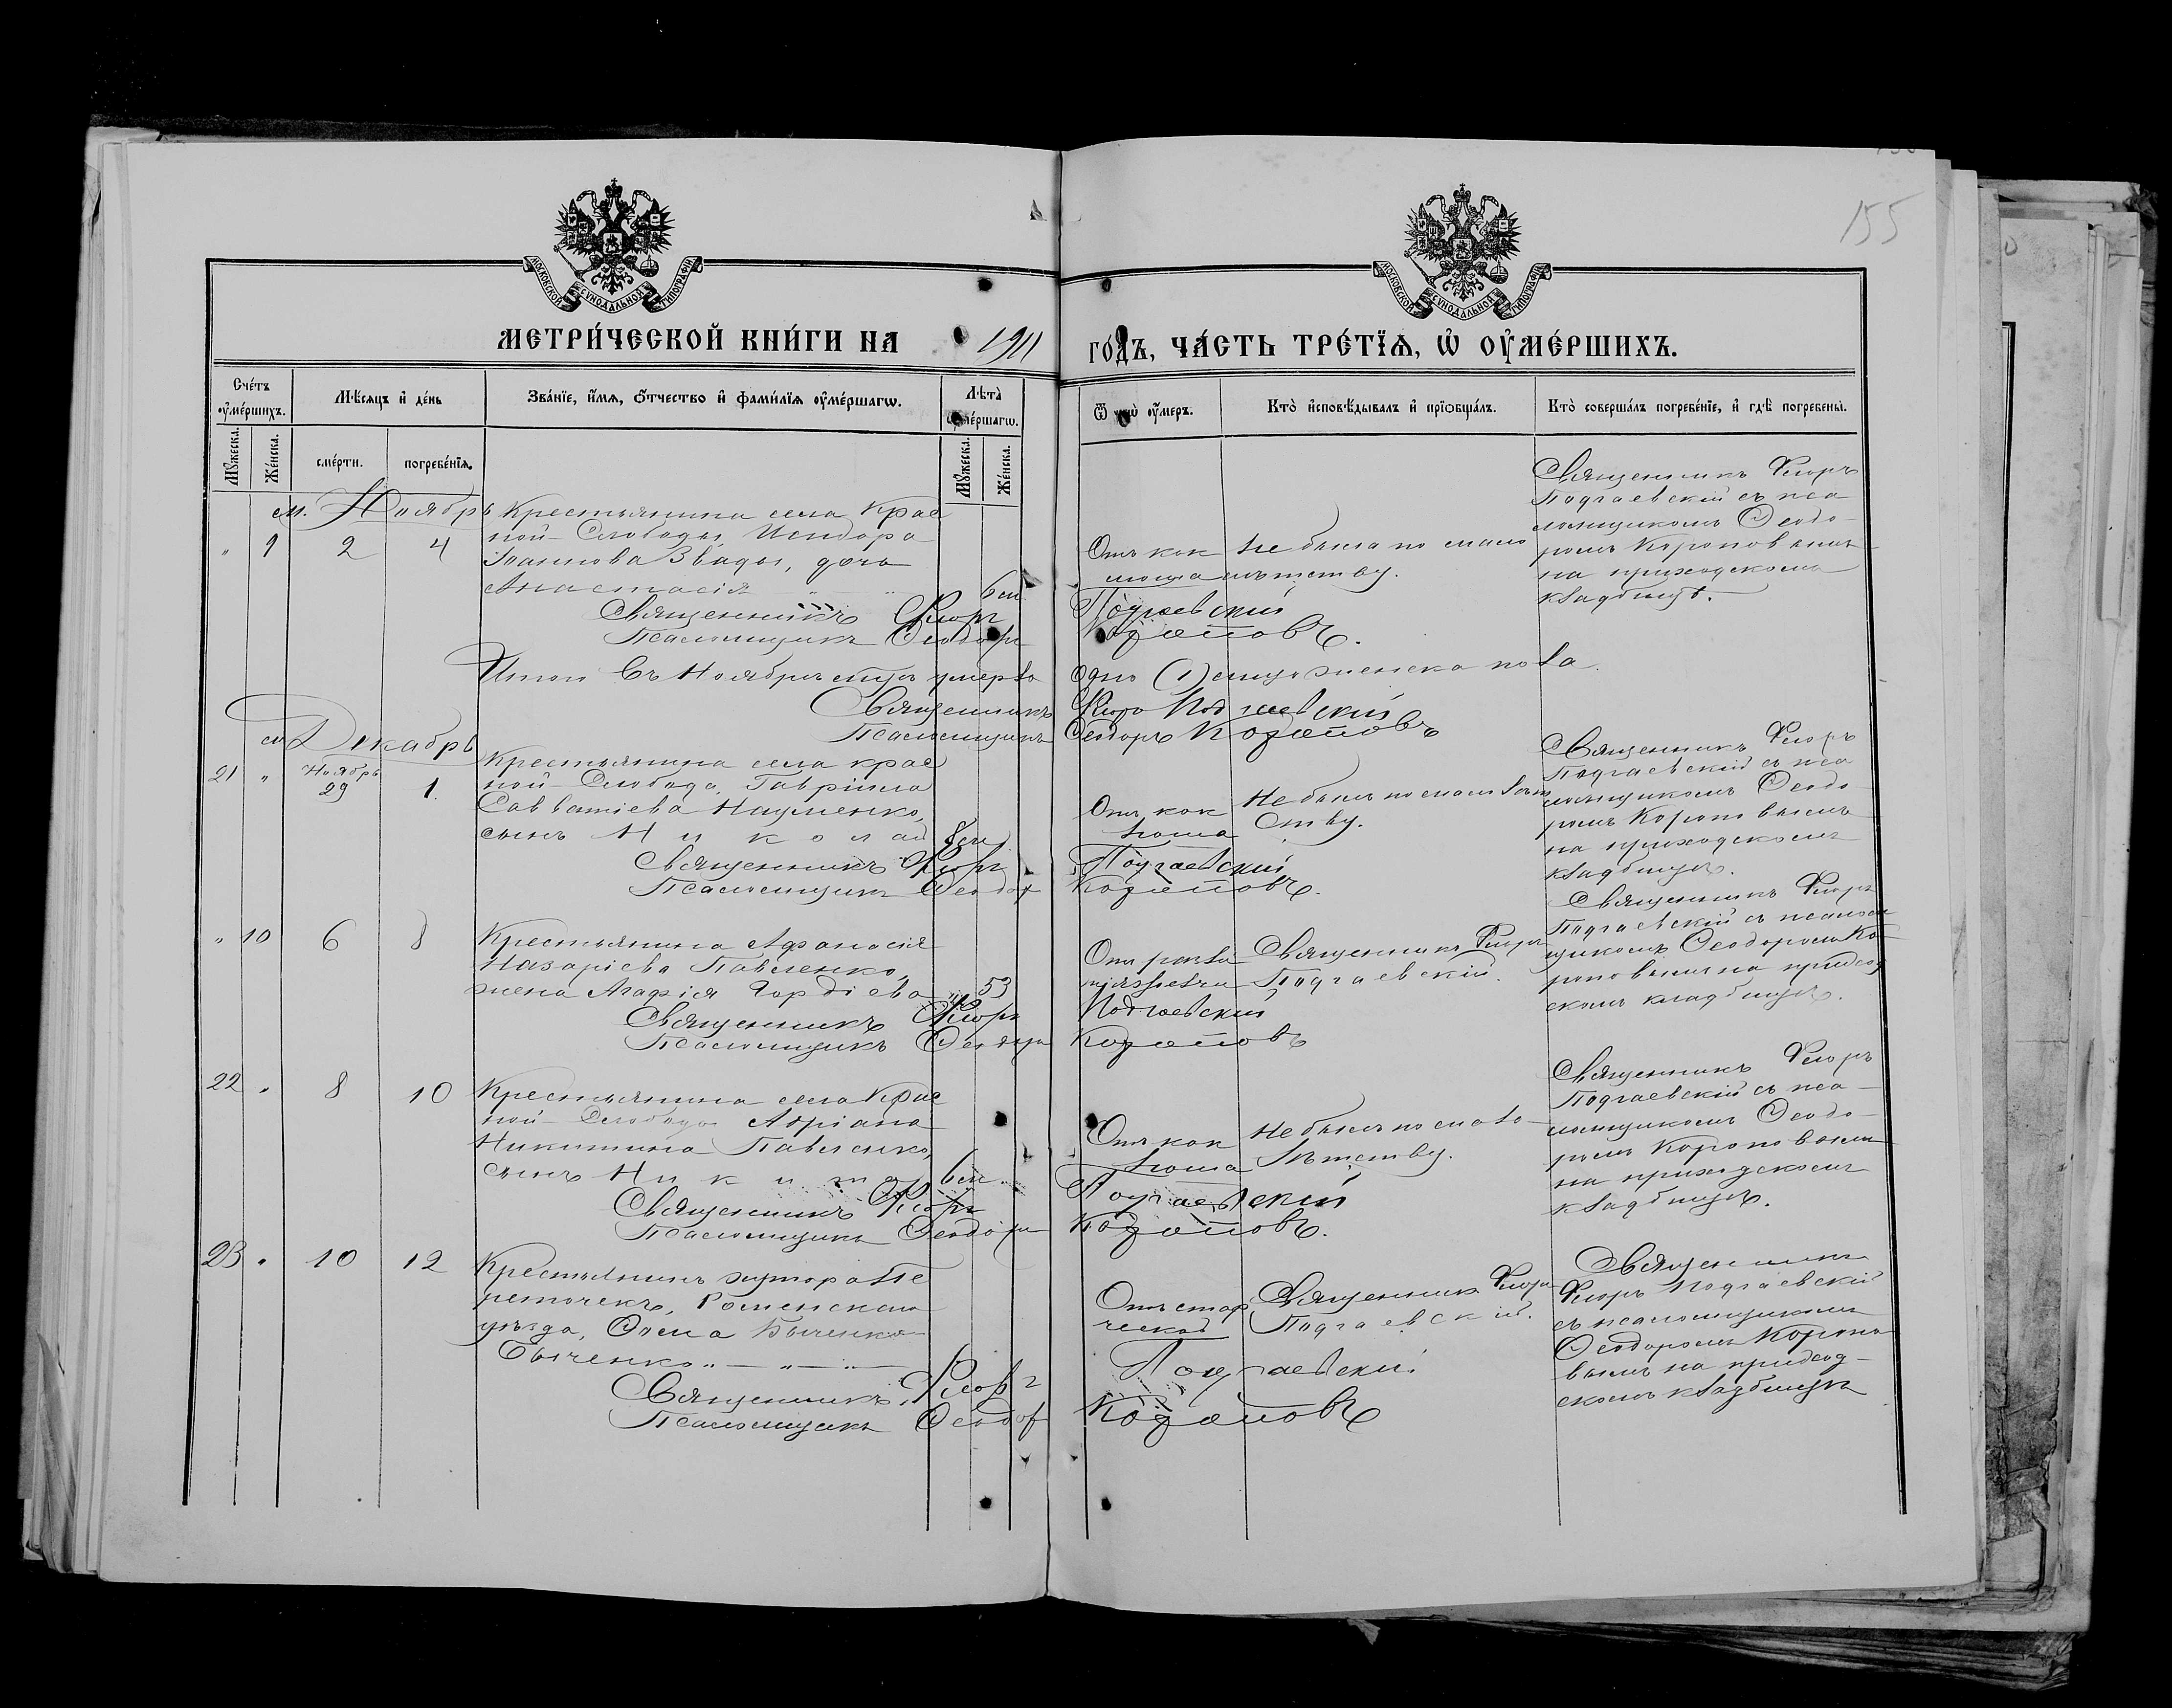 155
МОСКОВСКОЙ СѴНОДАЛЬНОЙ ТИПОГРАФІИ
МОСКОВСКОЙ СѴНОДАЛЬНОЙ ТИПОГРАФІИ
МЕТРИ́ЧЕСКОЙ КНИ́ГИ НА 1911 ГО́ДЪ, ЧА́СТЬ ТРЕ́ТЇѦ, Ѡ҆ ОУ҆МЕ́РШИХЪ.
Сче́тъ оу҆ме́ршихъ.
Мѣ́сѧцъ и҆ де́нь
Зва́нїе, и҆́мѧ, ѻ҆́тчество и҆ фами́лїѧ оу҆ме́ршагѡ.
Лѣ́та оу҆ме́ршагѡ.
Ѿ чегѡ̀ оу҆́меръ.
Кто̀ и҆сповѣ́дывалъ и҆ прїѡбща́лъ.
Кто̀ соверша́лъ погребе́нїе, и҆ гдѣ̀ погребены̀.
Мꙋ́жеска.
Же́нска.
сме́рти.
погребе́нїѧ.
Мꙋ́жеска.
Же́нска.
м. Ноябрь
" 9 2 4
Крестьянина села Крас
ной-Слободы, Исидора
Іоаннова Звады, дочь
Анастасія 6 м.
Отъ кок
люша
Не была по мало
лѣтству.
Священникъ Флоръ
Подгаевскій съ пса
ломщикомъ Ѳеодо-
ромъ Короповымъ
на приходскомъ
кладбищѣ.
Священникъ Флоръ Подгаевскій
Псаломщикъ Ѳеодоръ Короповъ.
Итого въ Ноябрѣ мѣс. умерло одно (1) лицо женска пола.
Священникъ Флоръ Подгаевскій
Псаломщикъ Ѳеодоръ Короповъ
м. Декабрь
21 " Ноябрь 29 1.
Крестьянина села Крас
ной-Слободы, Гавріила
Савватіева Науменко,
сынъ Николай 8 м.
Отъ кок
люша
Не былъ по малолѣт
ству.
Священникъ Флоръ
Подгаевскій съ пса
ломщикомъ Ѳеодо-
ромъ Короповымъ
на приходскомъ
кладбищѣ.
Священникъ Флоръ Подгаевскій
Псаломщикъ Ѳеодоръ Короповъ.
" 10 6 8
Крестьянина Аѳанасія
Назаріева Павленко,
жена Агафія Гордіева 53
Священникъ Флоръ
Подгаевскій.
Священникъ Флоръ
Подгаевскій съ псалом
щикомъ Ѳеодоромъ Ко-
роповымъ на приход
скомъ кладбищѣ.
Священникъ Флоръ Подгаевскій
Псаломщикъ Ѳеодоръ Короповъ
22 " 8 10
Крестьянина села Крас
ной-Слободы Адріана
Никитина Павленко,
сынъ Никита 6 м.
Отъ кок
люша
Не былъ по мало-
лѣтству.
Священникъ Флоръ
Подгаевскій съ пса-
ломщикомъ Ѳеодо-
ромъ Короповымъ
на приходскомъ
кладбищѣ.
Священникъ Флоръ Подгаевскій
Псаломщикъ Ѳеодоръ Короповъ.
23 " 10 12
Крестьянинъ хутора Бе
реточекъ, Роменскаго
уѣзда, Ѳома
Быченко
Отъ стар
ческой
Священникъ Флоръ
Подгаевскій.
Священникъ
Флоръ Подгаевскій
съ псаломщикомъ
Ѳеодоромъ Коропо-
вымъ на приход-
скомъ кладбищѣ
Священникъ Флоръ Подгаевскій
Псаломщикъ Ѳеодоръ Короповъ